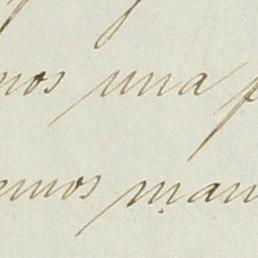 mos una
emos man